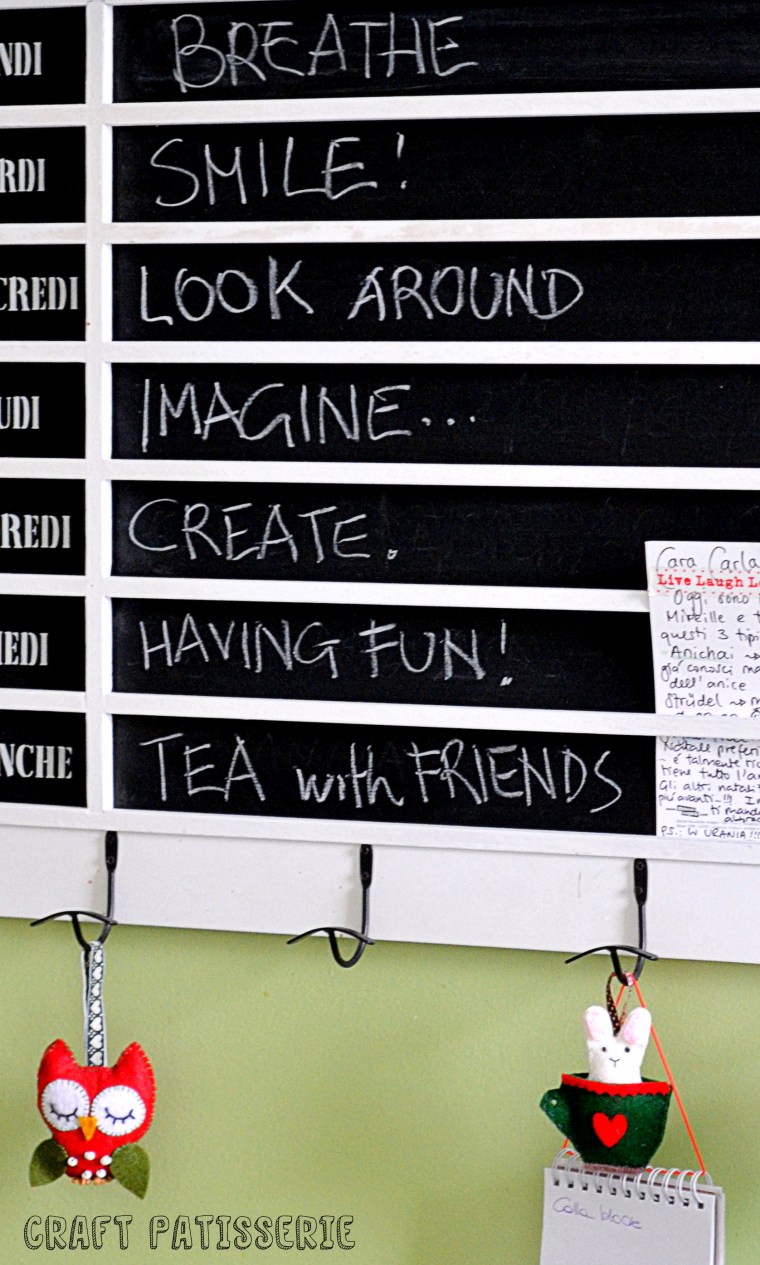 NDI BREATHE
RDI SMILE!
CREDI LOOK AROUND
UDI IMAGINE...
REDI CREATE.
MEDI HAVING FUN!
NCHE TEA with FRIENDS
Cara Carla
Live Laugh L
Oggi sono
Mireille e t
questi 3 tipi
Anichai
già conosci ma
dell'anice
Strüdel
Kristalle preferi
è talmente ric
tiene tutto l'ar
Gli altri natali
più avanti-!!! I
ti manda
P.S.: W URANIA!!!
Colla block
CRAFT PATISSERIE